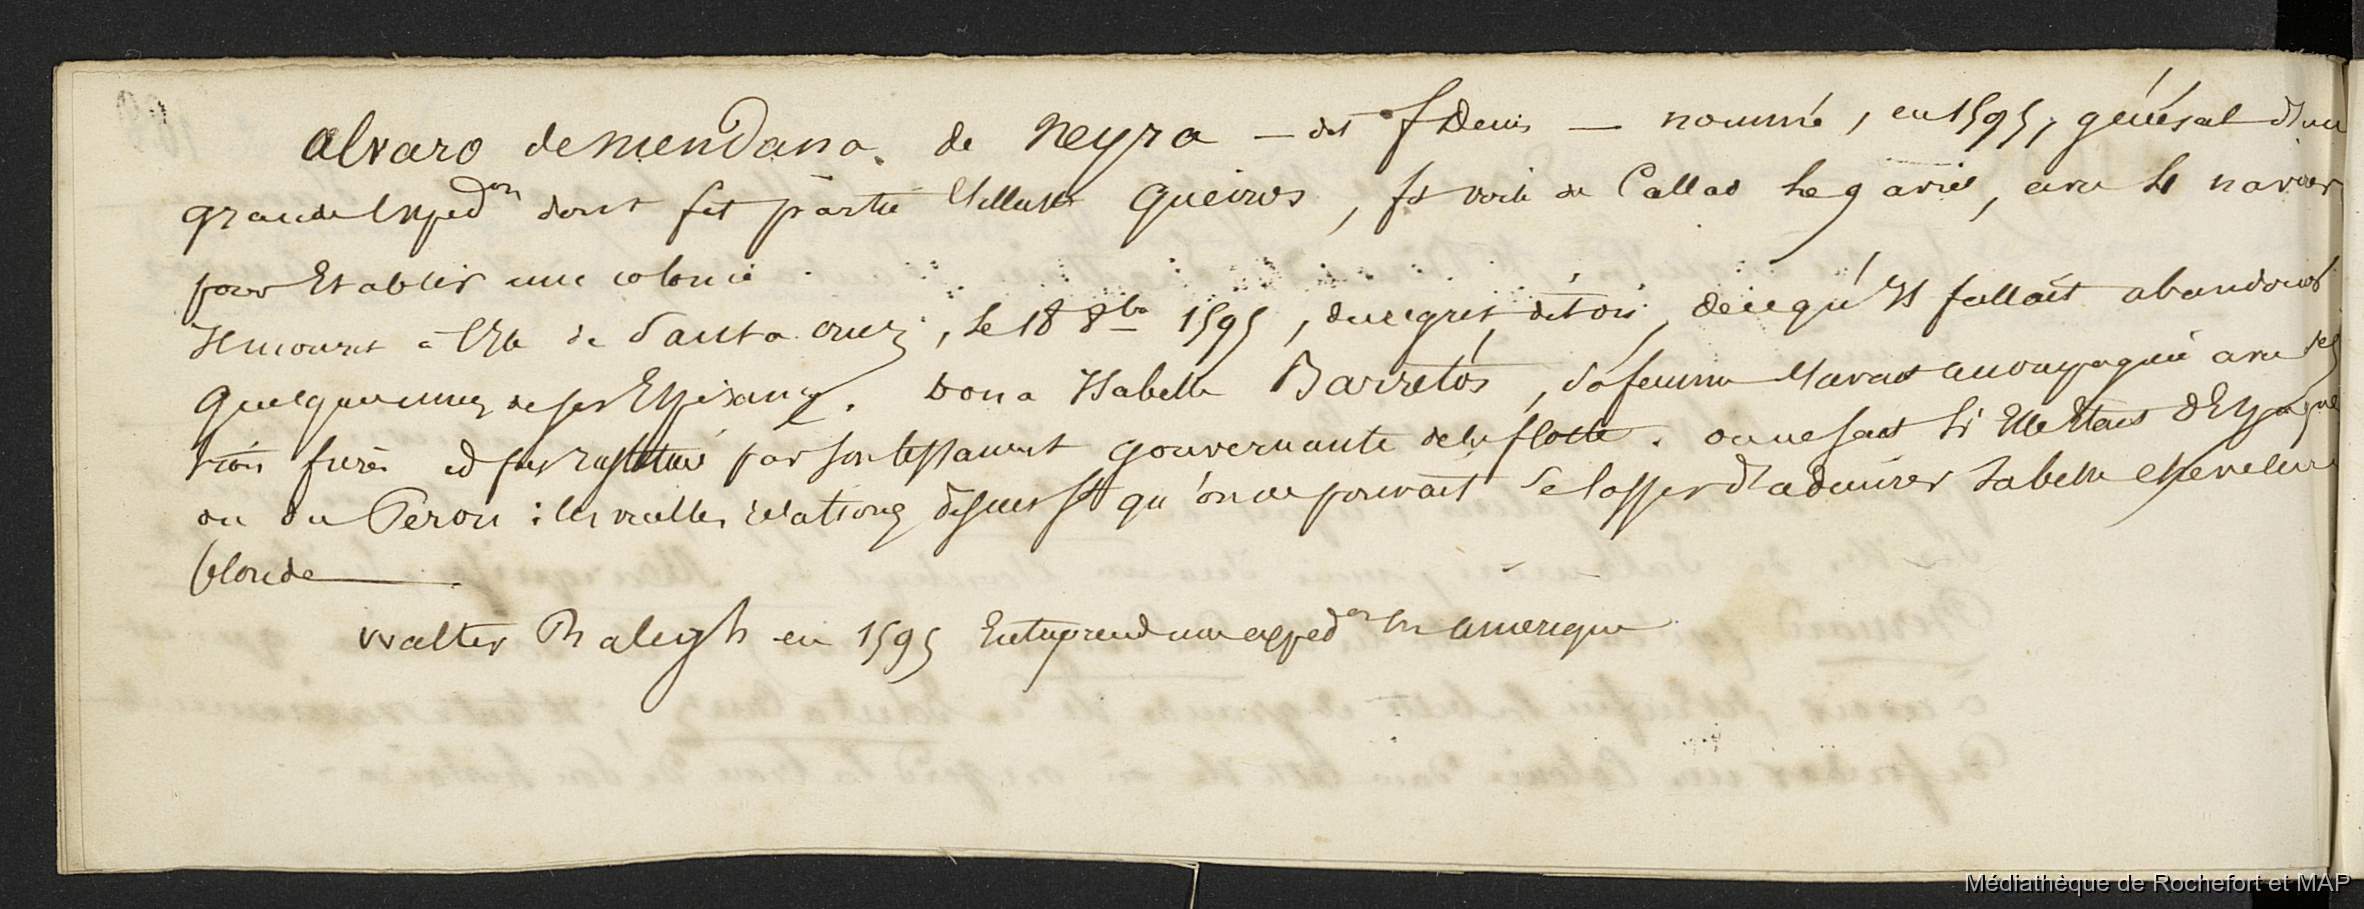 Alvaro de Mendana de Neyra — dit f Denis — nommé, en 1595, général d'une
grande Exped.on dont fit partie l'illustre Queiros, fit voile de Callao le 9 avril, avec 4 navires
pour Etablir une colonie
Il mourut à l'Ile de Santa Cruz, le 18 8bre 1595, du regret, dit on, de ce qu'Il fallait abandonner
quelques unes de ses Espérances. Dona Isabelle Barretos, sa femme l'avait accompagné avec ses
trois frères et fut par son testament gouvernante de la flotte. on ne sait si Elle Etait d'Espagne
ou du Perou : les vieilles relations disent qu'on ne pouvait se lasser d'admirer sa belle chevelure
blonde
Walter Raleigh en 1595 Entreprend une exped.on En amerique
Médiathèque de Rochefort et MAP